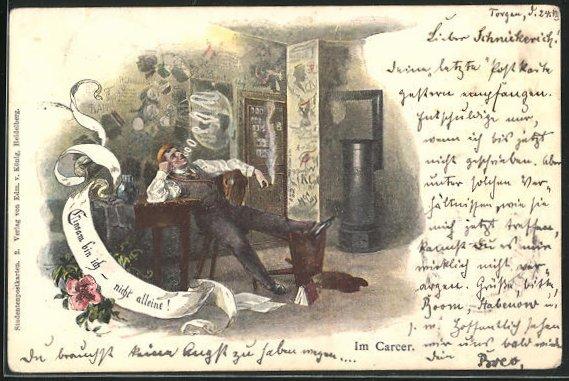 Torgau, d. 24.
Lieber Schnickerich!
Deine „letzte“ Postkarte
gestern empfangen.
Entschuldige nur,
wenn ich bis jetzt
nicht geschrieben. Aber
unter solchen Ver-
hältnissen, wie sie
mich jetzt treffen,
kannst Du es mir
wirklich nicht ver-
argen. Grüße, bitte,
Boom, Habenow u.
s. w. Hoffentlich sehen
wir uns bald wieder
Dein
Du brauchst keine Angst zu haben wegen....
Im Carcer.
Einsam bin ich –
nicht alleine!
Studentenpostkarten. 2. Verlag von Edm. v. König, Heidelberg.